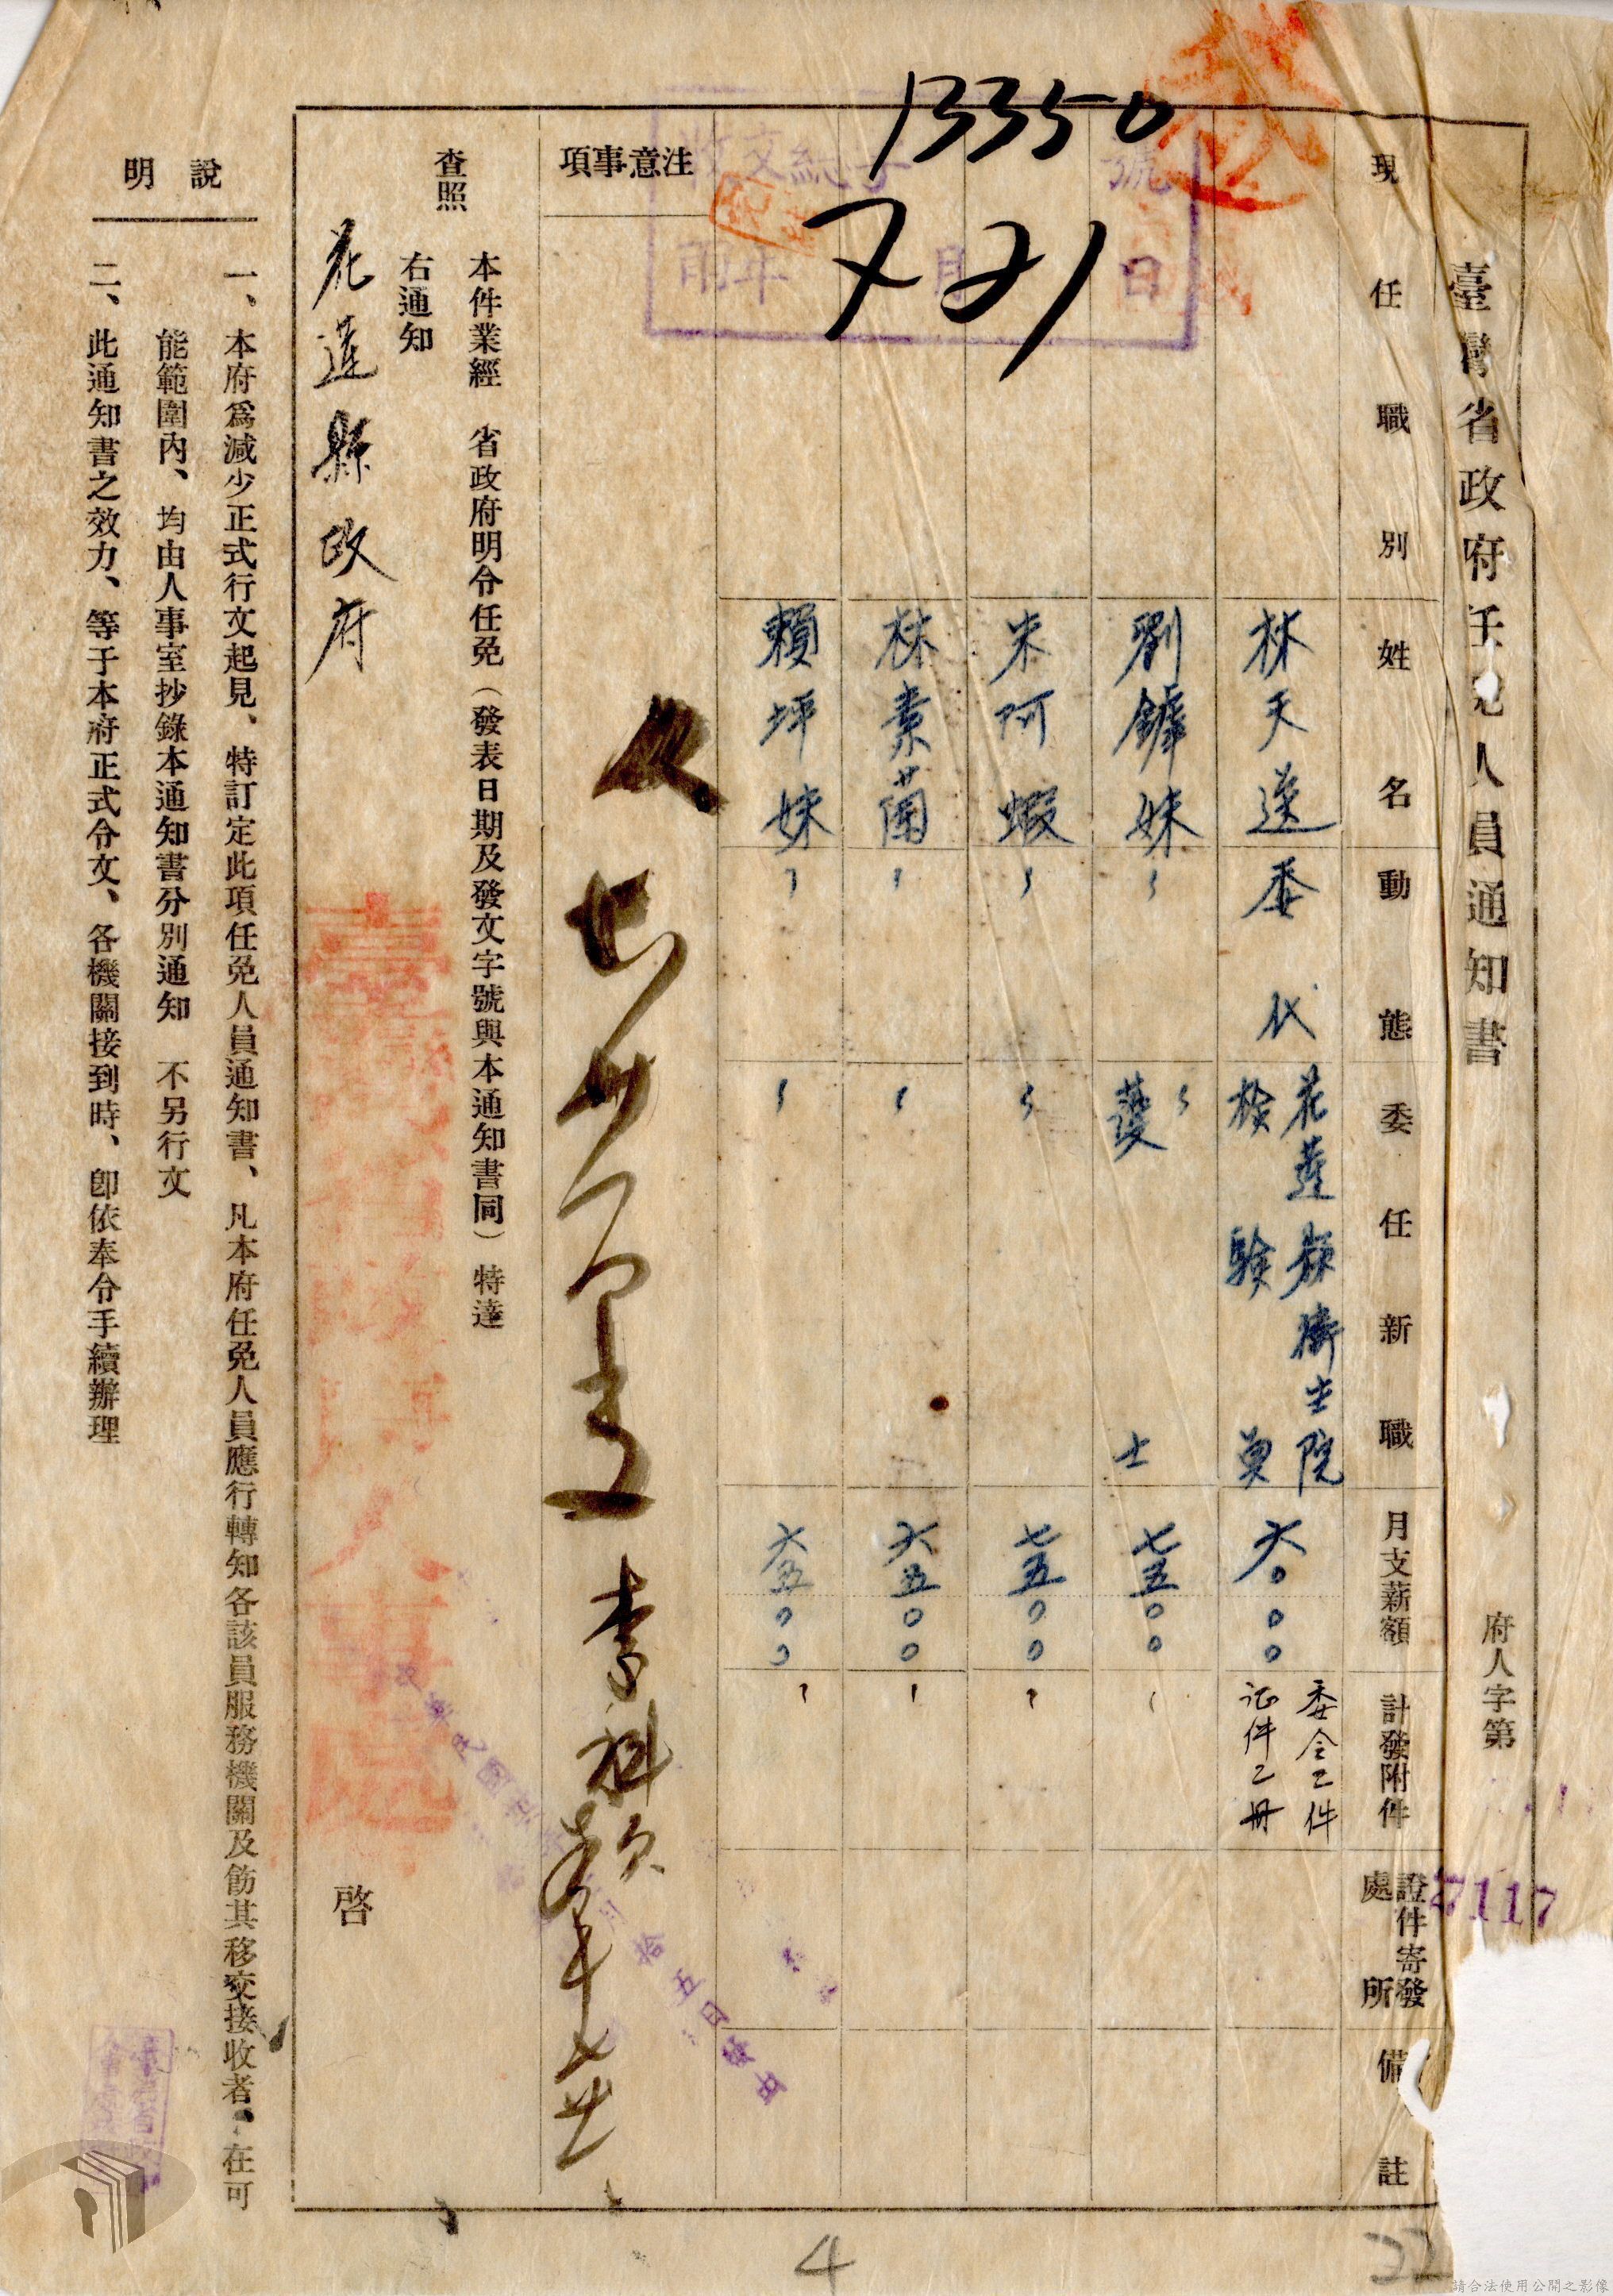 臺灣省政府任免人員通知書
府人字第
7117
現任職別 姓名 動態 委任新職 月支薪額 計發附件 證件寄發處所 備註
林天送 委代 花蓮縣衛生院檢驗員 六〇〇〇 委令乙件 証件乙冊
劉鎼妹 〃 〃護士 七五〇〇 〃
朱阿蝦 〃 〃 七五〇〇 〃
林素蘭 〃 〃 六五〇〇 〃
賴坪妹 〃 〃 六五〇〇 〃
13350
7 21
號
月 日
注意事項
查照
本件業經 省政府明令任免（發表日期及發文字號與本通知書同）特達
右通知
花蓮縣政府
啓
說明
一、本府爲減少正式行文起見、特訂定此項任免人員通知書、凡本府任免人員應行轉知各該員服務機關及飭其移交接收者、在可
能範圍內、均由人事室抄錄本通知書分別通知 不另行文
二、此通知書之效力、等于本府正式令文、各機關接到時、卽依奉令手續辦理
4
22
請合法使用公開之影像